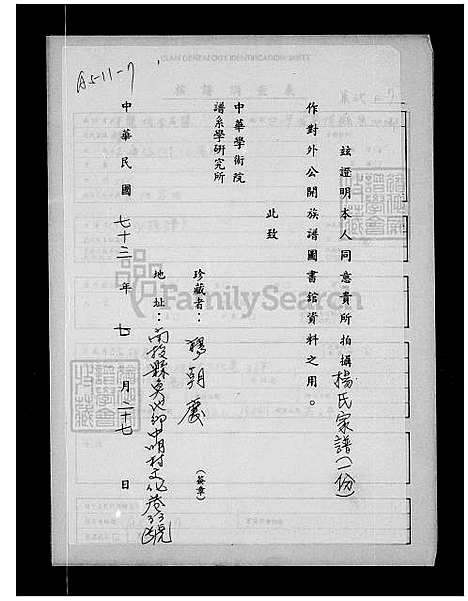 CLAN GENEALOGY IDENTIFICATION SHEET
A5-11-7
茲證明本人同意貴所拍攝楊氏家譜(一份)
作對外公開族譜圖書館資料之用。
此致
中華學術院
譜系學研究所
珍藏者：楊朝慶(簽章)
地址：南投縣魚池鄉中明村文化巷33號
中華民國七十三年七月二十七日
FamilySearch